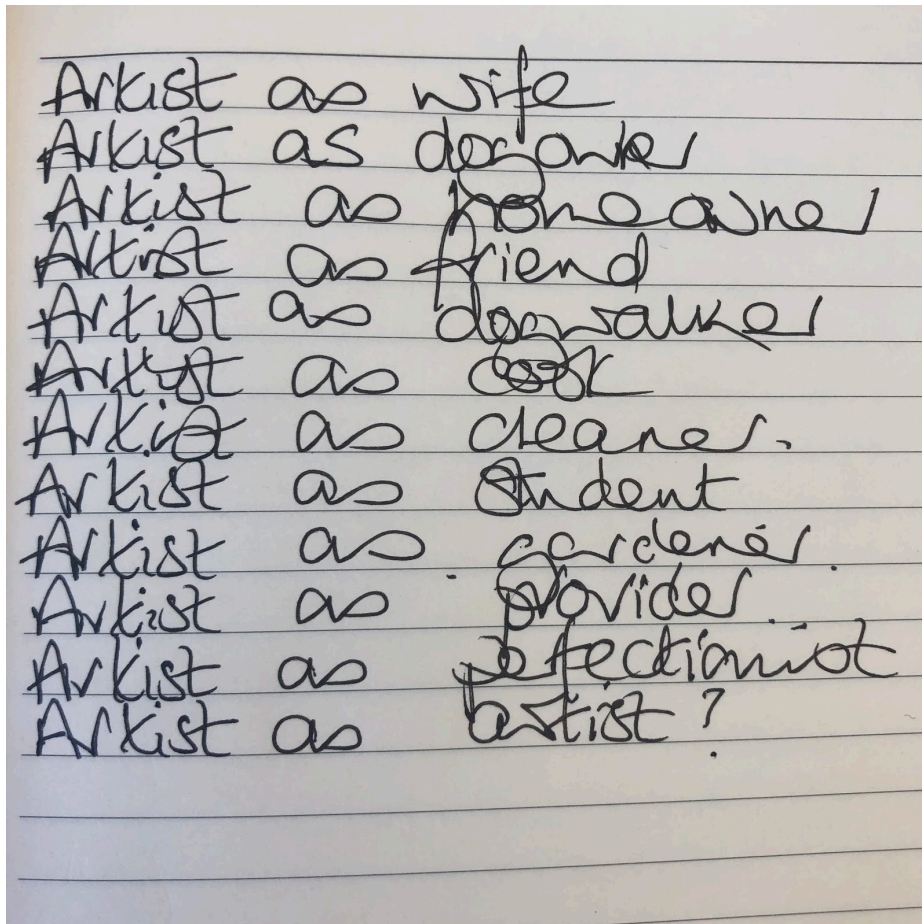 Artist as wife
Artist as dog owner
Artist as homeowner
Artist as friend
Artist as dogwalker
Artist as cook
Artist as cleaner.
Artist as student
Artist as gardener
Artist as provider
Artist as perfectionist
Artist as artist?